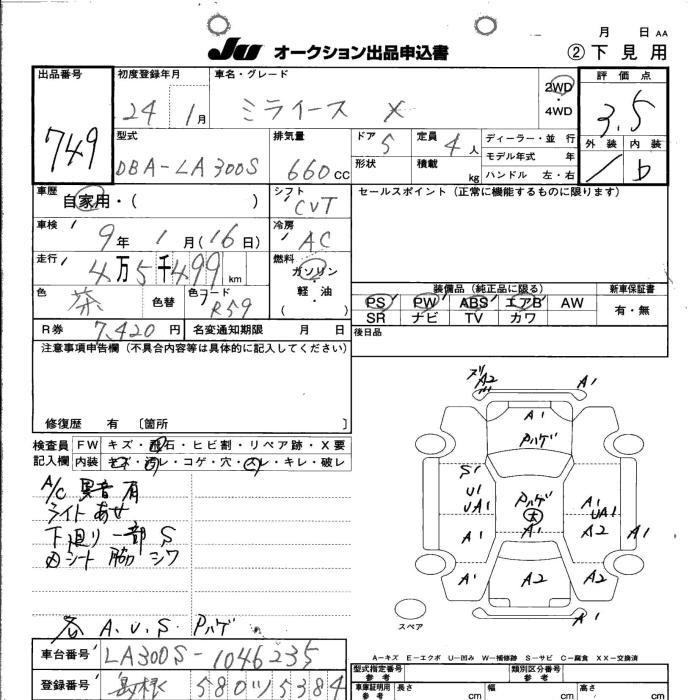 月 日 AA
JU オークション出品申込書 ②下見用
出品番号 749
初度登録年月 24 1月
車名・グレード ミライース X
2WD・4WD
評価点 3.5
外装 内装 b
型式 DBA-LA300S
排気量 660cc
ドア 5
定員 4人
形状
積載 kg
ディーラー・並行
モデル年式 年
ハンドル 左・右
車歴 自家用・( )
シフト CVT
セールスポイント(正常に機能するものに限ります)
車検 9年 1月(16日)
冷房 AC
走行 4万5千499km
燃料 ガソリン・軽・油 ( )
色 茶 色替 色コード R59
装備品(純正品に限る)
新車保証書
PS PW ABS エアB AW 有・無
SR ナビ TV カワ
R券 7,420円 名変通知期限 月 日
後日品
注意事項申告欄(不具合内容等は具体的に記入してください)
修復歴 有 〔箇所 〕
検査員記入欄
FW キズ・飛石・ヒビ割・リペア跡・X要
内装 キズ・汚レ・コゲ・穴・スレ・キレ・破レ
A/C 異音有
ライトあせ
下廻り一部S
内シート脇シワ
各 A.U.S. Pハゲ
A2 A1
A1
Pハゲ
S1
U1
UA1
Pハゲ
大
A1
A1
UA1
A1
A2
A1
A1
A2
A2
A1
スペア
A-キズ E-エクボ U-凹み W-補修跡 S-サビ C-腐食 XX-交換済
車台番号 LA300S-1046235
型式指定番号 参考
類別区分番号 参考
登録番号 島根 580 ツ 5384
車庫証明用 参考 長さ cm 幅 cm 高さ cm